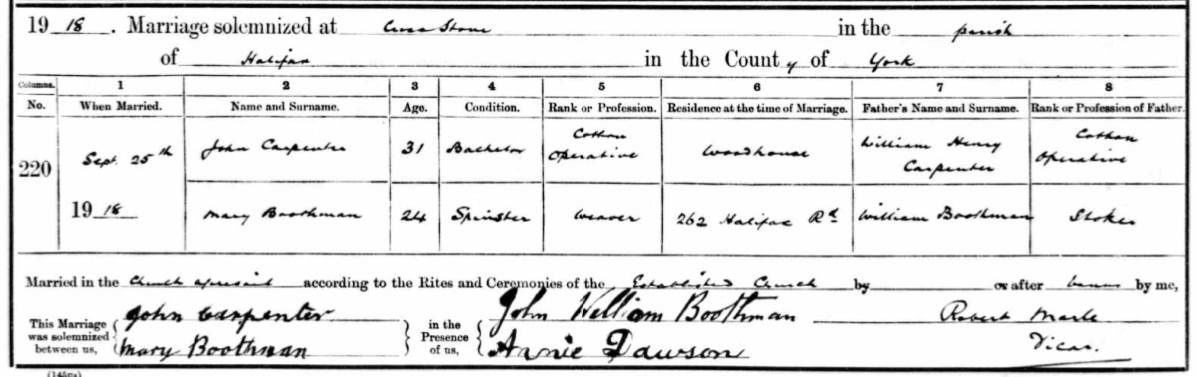 19 18. Marriage solemnized at Cross Stone in the parish
of Halifax in the County of York
Columns. 1 2 3 4 5 6 7 8
No. When Married. Name and Surname. Age. Condition. Rank or Profession. Residence at the time of Marriage. Father's Name and Surname. Rank or Profession of Father.
220 Sept. 25th John Carpenter 31 Bachelor Cotton Operative Woodhouse William Henry Carpenter Cotton Operative
19 18 Mary Boothman 24 Spinster Weaver 262 Halifax Rd William Boothman Stoker
Married in the Church aforesaid according to the Rites and Ceremonies of the Established Church by or after banns by me,
This Marriage was solemnized between us, John Carpenter in the Presence of us, John William Boothman Robert
Mary Boothman Annie Dawson Vicar.